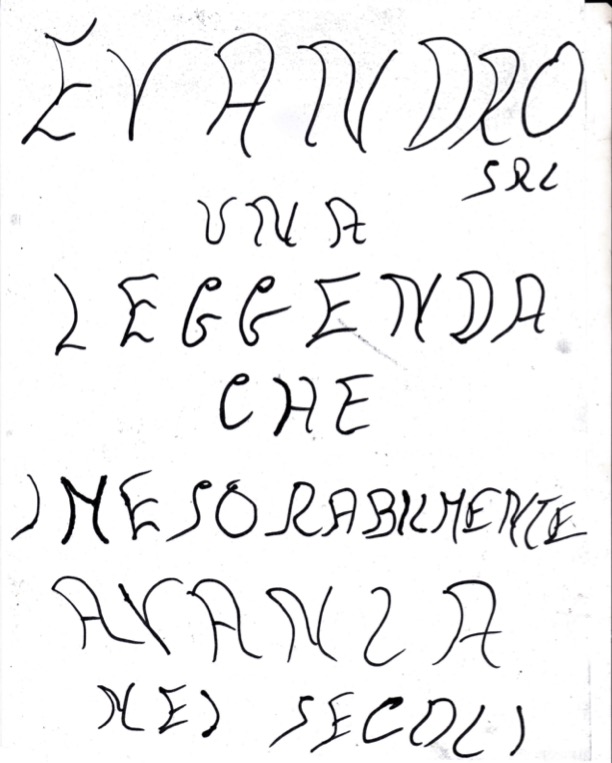 EVANDRO
SRL
UNA
LEGGENDA
CHE
INESORABILMENTE
AVANZA
NEI SECOLI